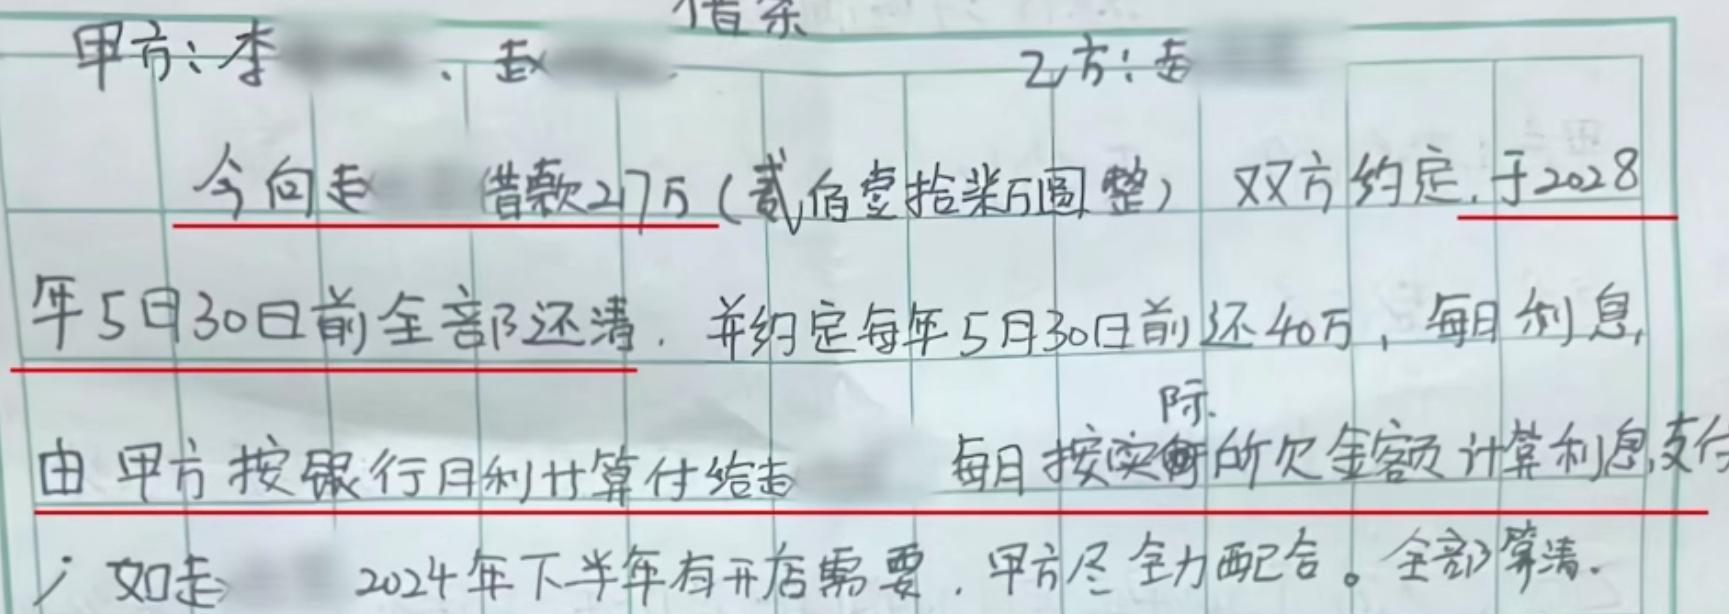 借条
甲方：李 、赵 乙方：赵
今向赵 借款217万（贰佰壹拾柒万圆整） 双方约定，于2028
年5月30日前全部还清．并约定每年5月30日前还40万，每月利息，
际．
由甲方按银行月利计算付给赵 每月按实所欠金额计算利息支付
；如赵 2024年下半年有开店需要，甲方尽全力配合。全部算清．